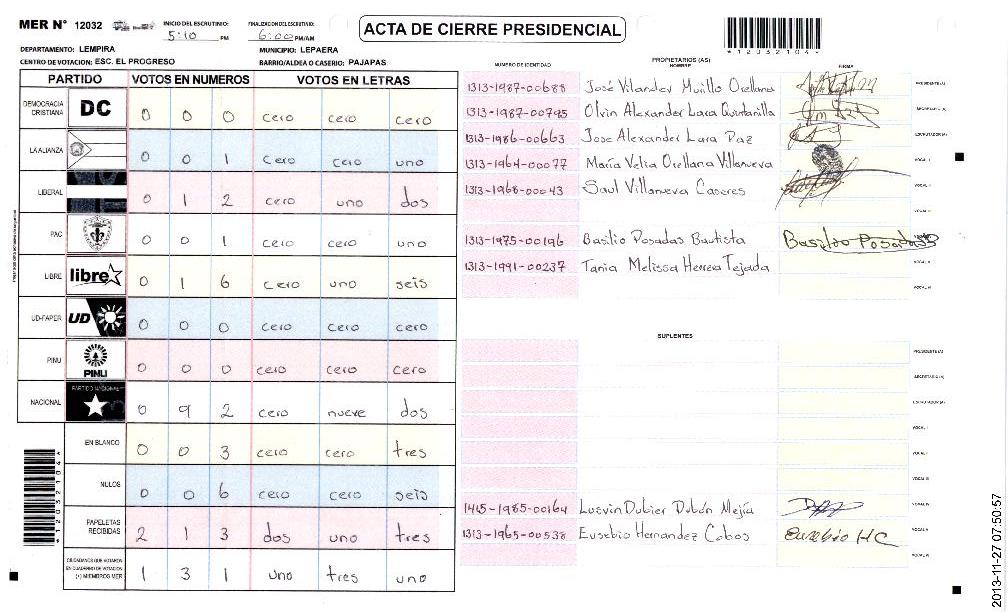 MER N° 12032
INICIO DEL ESCRUTINIO: 5:10 PM
FINALIZACION DEL ESCRUTINIO: 6:00 PM/AM
ACTA DE CIERRE PRESIDENCIAL
*12032104*
DEPARTAMENTO: LEMPIRA
MUNICIPIO: LEPAERA
CENTRO DE VOTACION: ESC. EL PROGRESO
BARRIO/ALDEA O CASERIO: PAJAPAS
PARTIDO VOTOS EN NUMEROS VOTOS EN LETRAS
DEMOCRACIA CRISTIANA DC 0 0 0 cero cero cero
LA ALIANZA 0 0 1 cero cero uno
LIBERAL 0 1 2 cero uno dos
PAC 0 0 1 cero cero uno
LIBRE libre 0 1 6 cero uno seis
UD-FAPER UD 0 0 0 cero cero cero
PINU PINU 0 0 0 cero cero cero
NACIONAL PARTIDO NACIONAL 0 9 2 cero nueve dos
EN BLANCO 0 0 3 cero cero tres
NULOS 0 0 6 cero cero seis
PAPELETAS RECIBIDAS 2 1 3 dos uno tres
CIUDADANOS QUE VOTARON EN CUADERNO DE VOTACION (+) MIEMBROS MER 1 3 1 uno tres uno
*12032104*
NUMERO DE IDENTIDAD
PROPIETARIOS (AS)
NOMBRE
FIRMA
1313-1987-00688 José Vilander Murillo Orellana PRESIDENTE (A)
1313-1987-00795 Olvin Alexander Lara Quintanilla SECRETARIO (A)
1313-1986-00663 Jose Alexander Lara Paz ESCRUTADOR (A)
1313-1964-00077 María Velia Orellana Villanueva VOCAL I
1313-1968-00043 Saul Villanueva Caseres VOCAL II
VOCAL III
1313-1975-00196 Basilio Posadas Bautista Basilio Posadas
1313-1991-00237 Tania Melissa Herrea Tejada VOCAL V
VOCAL VI
SUPLENTES
PRESIDENTE (A)
SECRETARIO (A)
ESCRUTADOR (A)
VOCAL I
VOCAL II
VOCAL III
1415-1985-00164 Lusvin Dubier Dubón Mejía VOCAL IV
1313-1965-00538 Eusebio Hernandez Cobos Eusebio HC VOCAL V
VOCAL VI
2013-11-27 07:50:57